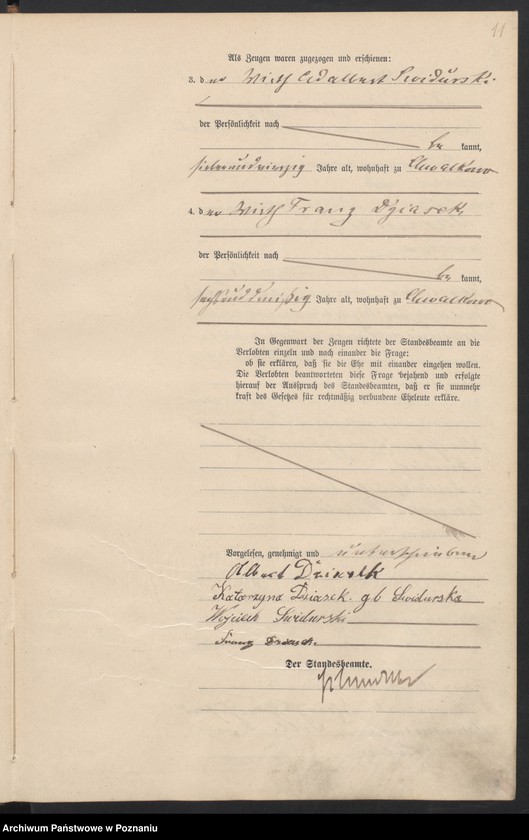 11
Als Zeugen waren zugezogen und erschienen:
3. der Wirth Adalbert Swidurski
der Persönlichkeit nach
be kannt,
siebenundvierzig Jahre alt, wohnhaft zu Chwalkowo
4. der Wirth Franz Dziasek
der Persönlichkeit nach
be kannt,
sechsunddreißig Jahre alt, wohnhaft zu Chwalkowo
In Gegenwart der Zeugen richtete der Standesbeamte an die
Verlobten einzeln und nach einander die Frage:
ob sie erklären, daß sie die Ehe mit einander eingehen wollen.
Die Verlobten beantworteten diese Frage bejahend und erfolgte
hierauf der Ausspruch des Standesbeamten, daß er sie nunmehr
kraft des Gesetzes für rechtmäßig verbundene Eheleute erkläre.
Vorgelesen, genehmigt und unterschrieben
Albert Dziasek
Katarzyna Dziasek. gb Swidurska
Wojciech Swidurski
Franz Dziasek.
Der Standesbeamte.
Archiwum Państwowe w Poznaniu